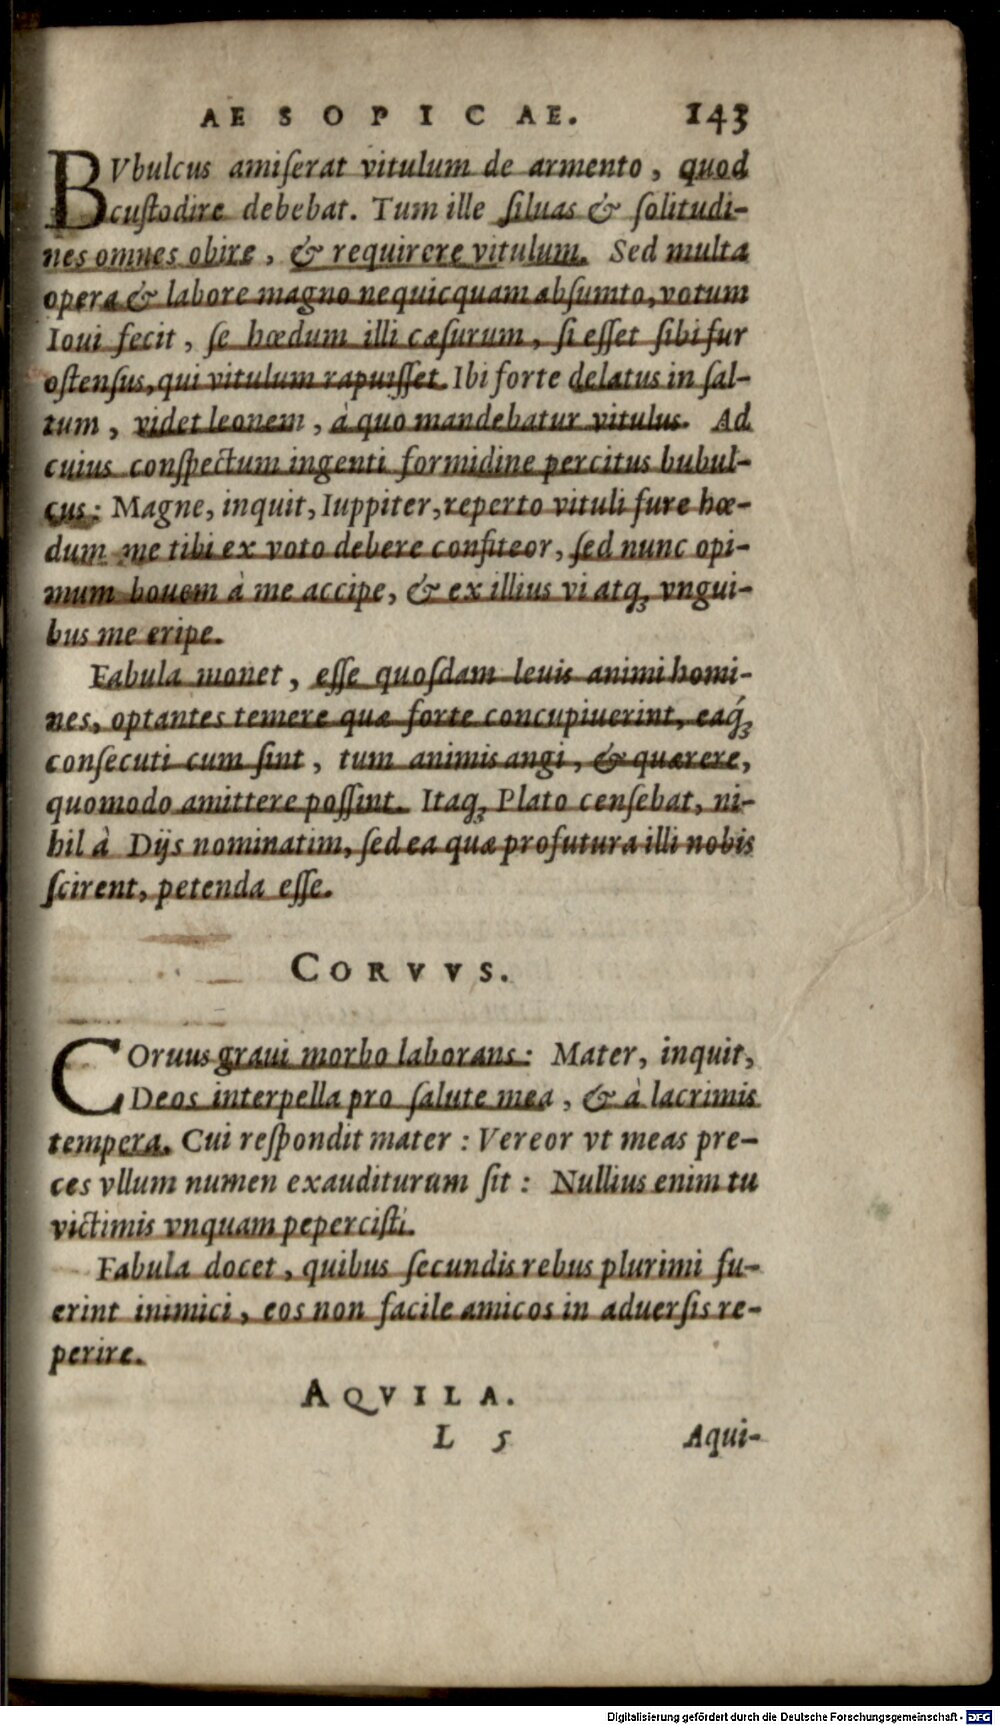 AESOPICAE. 143
BVbulcus amiserat vitulum de armento, quod
custodire debebat. Tum ille siluas & solitudi-
nes omnes obire, & requirere vitulum. Sed multa
opera & labore magno nequicquam absumto, votum
Ioui fecit, se hœdum illi cæsurum, si esset sibi fur
ostensus, qui vitulum rapuisset. Ibi forte delatus in sal-
tum, videt leonem, à quo mandebatur vitulus. Ad
cuius conspectum ingenti formidine percitus bubul-
cus: Magne, inquit, Iuppiter, reperto vituli fure hœ-
dum me tibi ex voto debere confiteor, sed nunc opi-
mum bouem à me accipe, & ex illius vi atq; vngui-
bus me eripe.
Fabula monet, esse quosdam leuis animi homi-
nes, optantes temere quæ forte concupiuerint, eaq́;
consecuti cum sint, tum animis angi, & quærere,
quomodo amittere possint. Itaq; Plato censebat, ni-
hil à Dijs nominatim, sed ea quæ profutura illi nobis
scirent, petenda esse.
CORVVS.
COruus graui morbo laborans: Mater, inquit,
Deos interpella pro salute mea, & à lacrimis
tempera. Cui respondit mater: Vereor vt meas pre-
ces vllum numen exauditurum sit: Nullius enim tu
victimis vnquam pepercisti.
Fabula docet, quibus secundis rebus plurimi fu-
erint inimici, eos non facile amicos in aduersis re-
perire.
AQVILA.
L 5 Aqui-
Digitalisierung gefördert durch die Deutsche Forschungsgemeinschaft - DFG